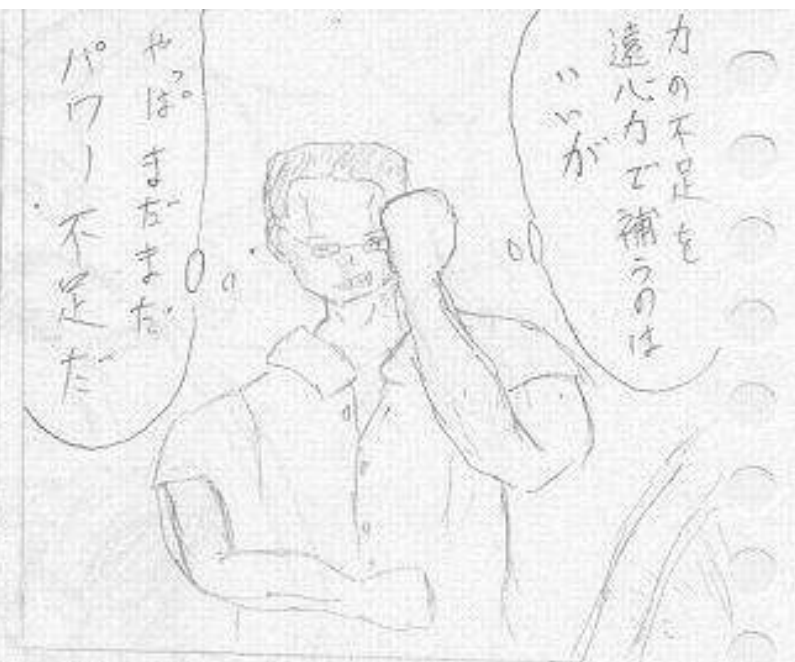 力の不足を
遠心力で補うのは
いいが
やっぱまだまだ
パワー不足だ